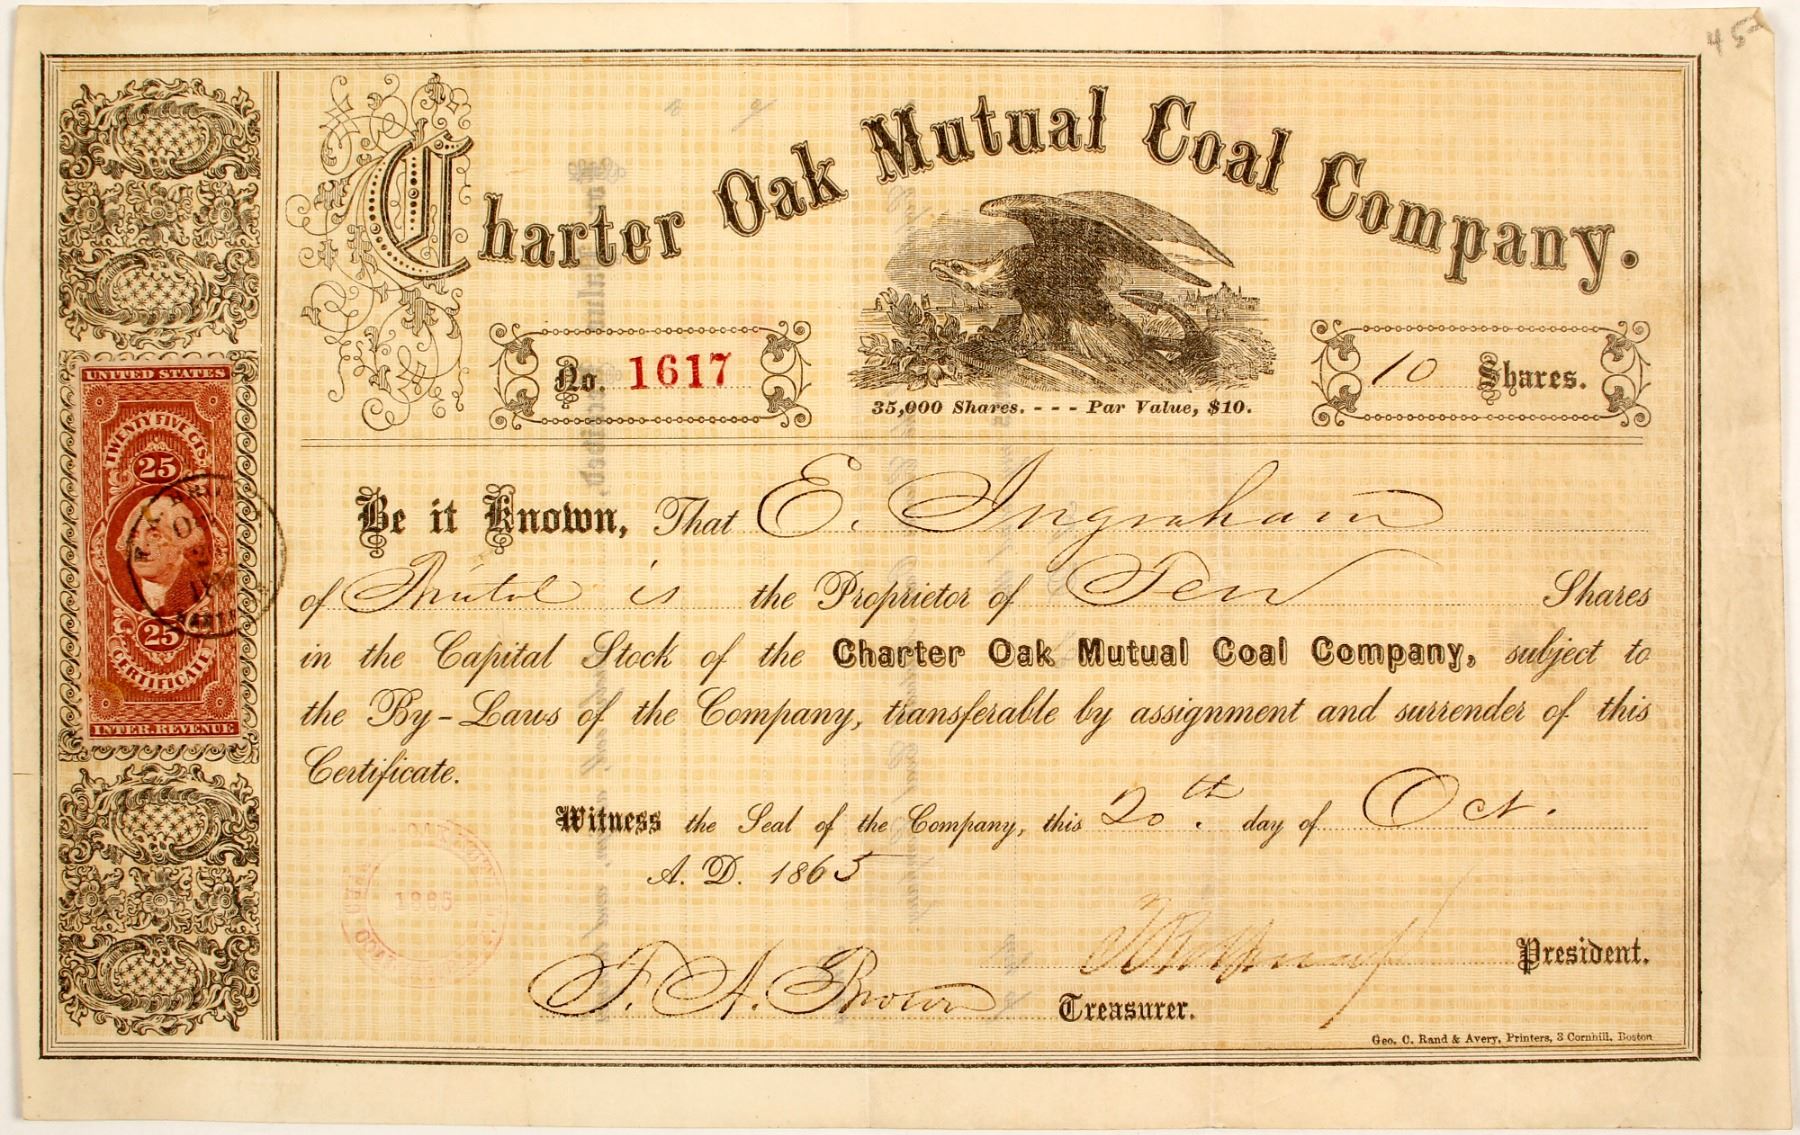 45
Charter Oak Mutual Coal Company.
No. 1617
10 Shares.
35,000 Shares. - - - Par Value, $10.
UNITED STATES
TWENTY FIVE CTS.
25
25
CERTIFICATE
INTER. REVENUE
Be it Known, That E. Ingraham
of Bristol is the Proprietor of Ten Shares
in the Capital Stock of the Charter Oak Mutual Coal Company, subject to
the By-Laws of the Company, transferable by assignment and surrender of this
Certificate.
Witness the Seal of the Company, this 20th. day of Oct.
A. D. 1865
1865
President.
F. A. Brown Treasurer.
Geo. C. Rand & Avery, Printers, 3 Cornhill, Boston